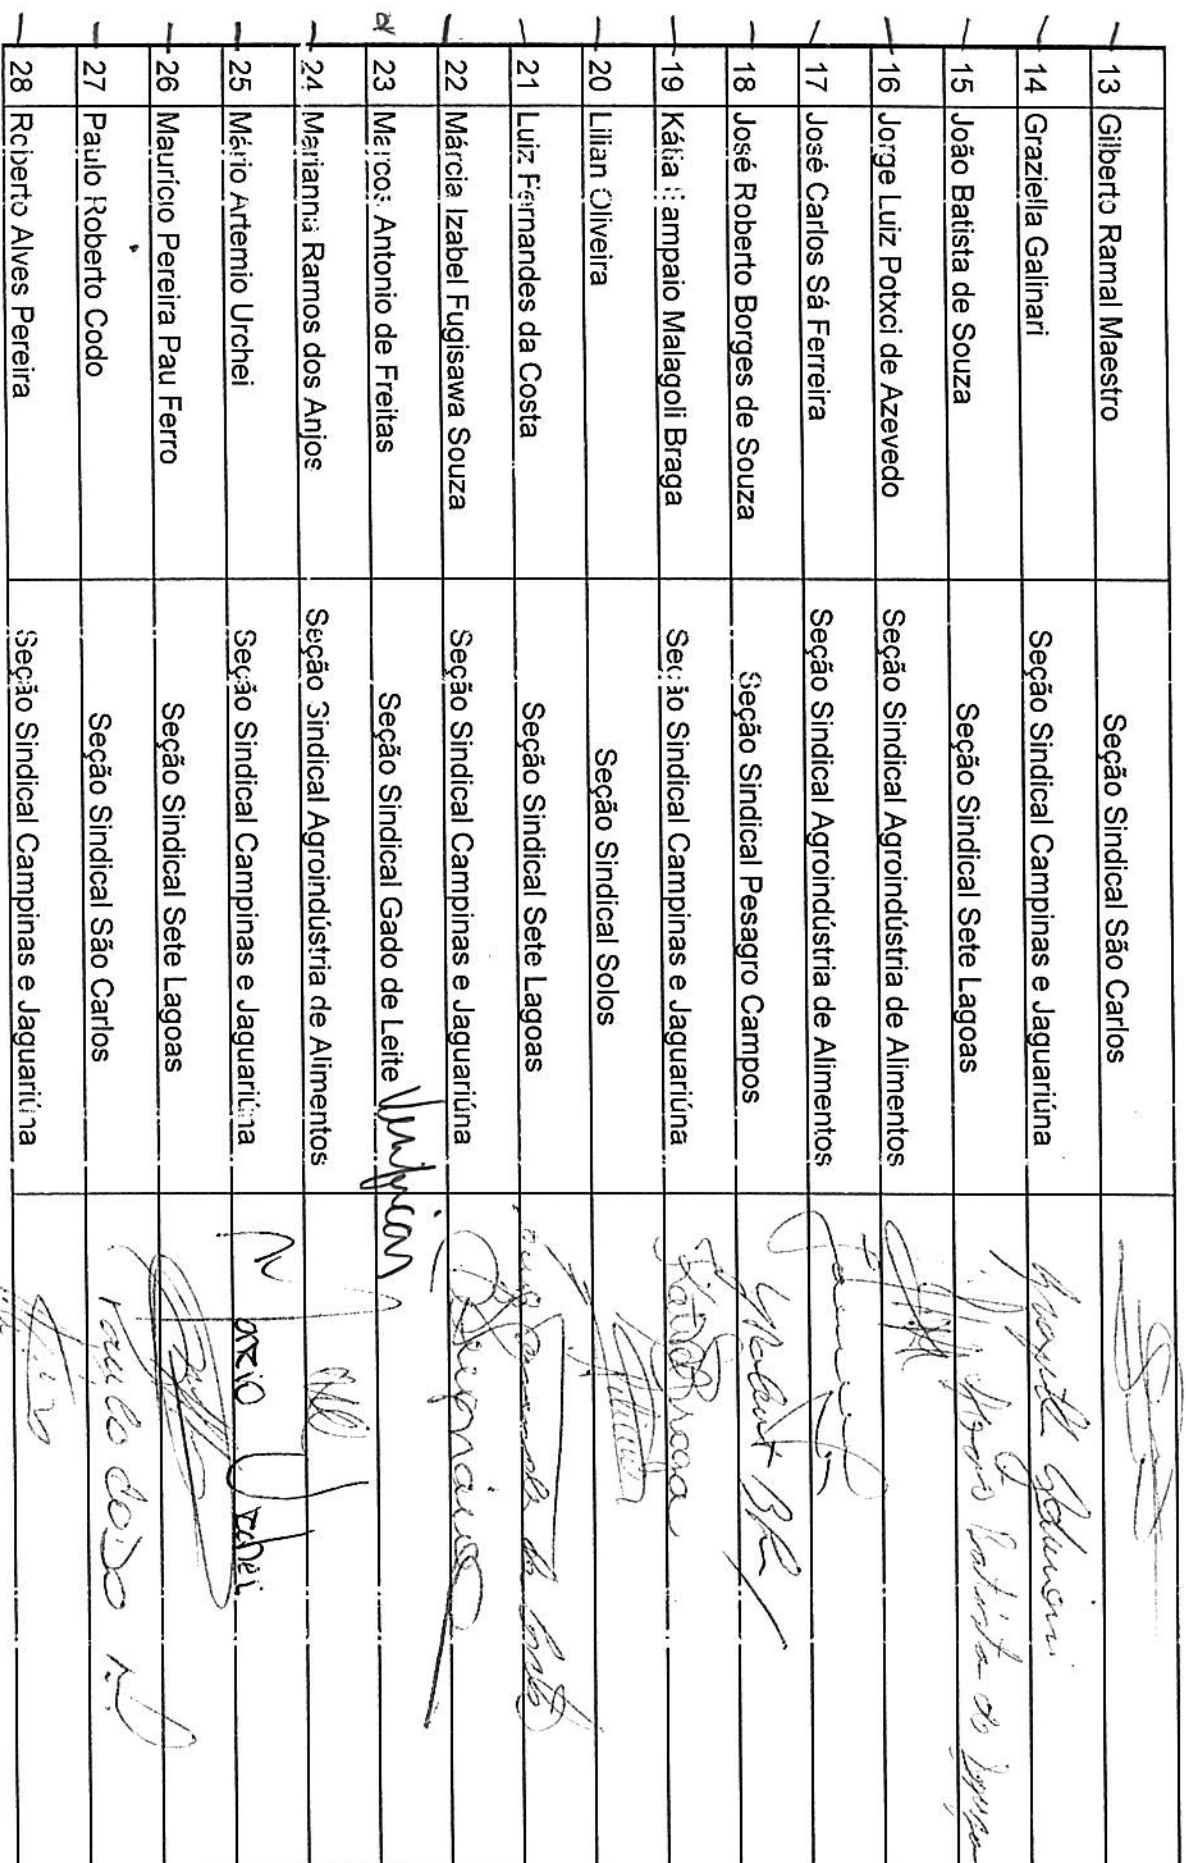 13 Gilberto Ramal Maestro Seção Sindical São Carlos
14 Graziella Galinari Seção Sindical Campinas e Jaguariúna
15 João Batista de Souza Seção Sindical Sete Lagoas João Batista de Souza
16 Jorge Luiz Potxci de Azevedo Seção Sindical Agroindústria de Alimentos
17 José Carlos Sá Ferreira Seção Sindical Agroindústria de Alimentos
18 José Roberto Borges de Souza Seção Sindical Pesagro Campos
19 Kátia Sampaio Malagoli Braga Seção Sindical Campinas e Jaguariúna
20 Lilian Oliveira Seção Sindical Solos
21 Luiz Fernandes da Costa Seção Sindical Sete Lagoas Luiz Fernandes da Costa
22 Márcia Izabel Fugisawa Souza Seção Sindical Campinas e Jaguariúna
23 Marcos Antonio de Freitas Seção Sindical Gado de Leite Verificar
24 Marianna Ramos dos Anjos Seção Sindical Agroindústria de Alimentos
25 Mário Artemio Urchei Seção Sindical Campinas e Jaguariúna Mario Urchei
26 Maurício Pereira Pau Ferro Seção Sindical Sete Lagoas
27 Paulo Roberto Codo Seção Sindical São Carlos
28 Roberto Alves Pereira Seção Sindical Campinas e Jaguariúna